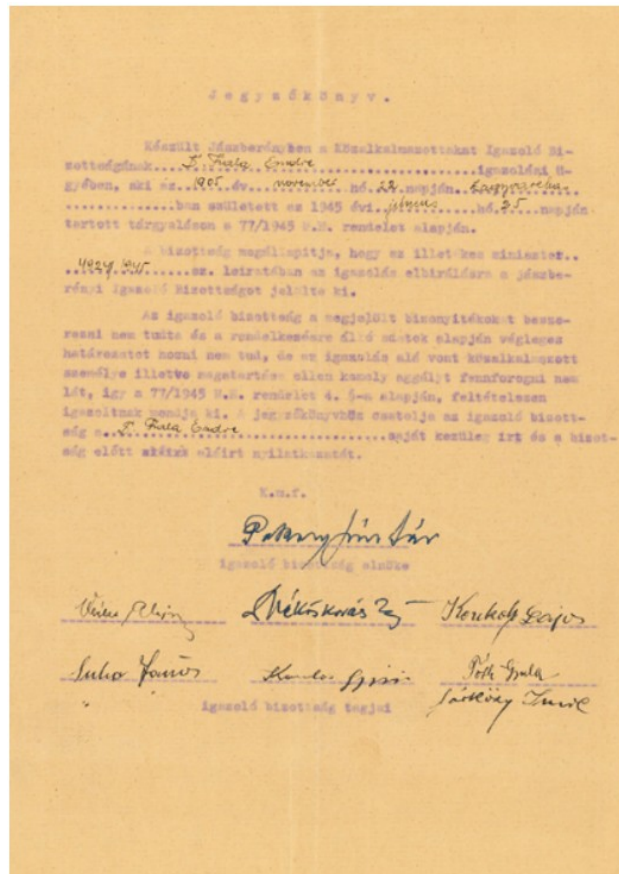 Jegyzőkönyv.
Készült Jászberényben a Közalkalmazottakat Igazoló Bi-
zottságának....F. Fiala Endre....igazolási ü-
gyében, aki az...1905.év...november...hó.22.napján.
....ban született az 1945 évi..június...hó.25...napján
tartott tárgyaláson a 77/1945 M.E. rendelet alapján.
A bizottság megállapítja, hogy az illetékes miniszter..
..4924/1945....sz. leiratában az igazolás elbírálásra a jászbe-
rényi Igazoló Bizottságot jelölte ki.
Az igazoló bizottság a megjelölt bizonyítékokat besze-
rezni nem tudta és a rendelkezésre álló adatok alapján végleges
határozatot hozni nem tud, de az igazolás alá vont közalkalmazott
személye illetve magatartása ellen komoly aggályt fennforogni nem
lát, így a 77/1945 M.E. rendelet 4. §-a alapján, feltételesen
igazoltnak mondja ki. A jegyzőkönyvhöz csatolja az igazoló bizott-
ság a..F. Fiala Endre....saját kezüleg írt és a bizot-
ság előtt aláírt nyilatkozatát.
K.m.f.
igazoló bizottság elnöke
Lajos
Suha János Tóth Gyula
igazoló bizottság tagjai Imre